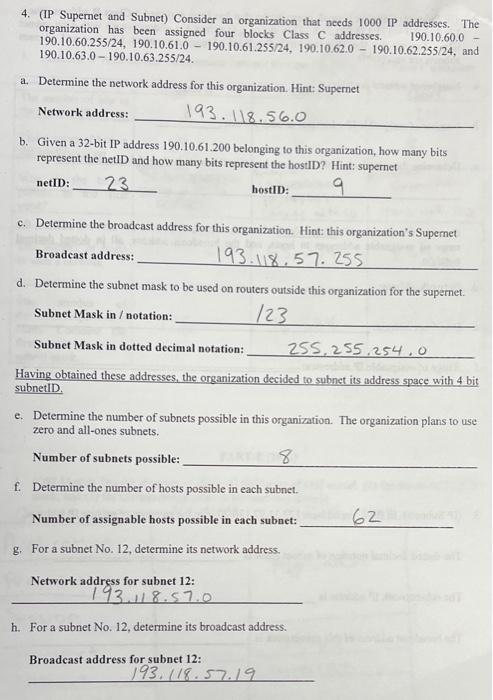 4. (IP Supernet and Subnet) Consider an organization that needs 1000 IP addresses. The
organization has been assigned four blocks Class C addresses. 190.10.60.0 –
190.10.60.255/24, 190.10.61.0 – 190.10.61.255/24, 190.10.62.0 – 190.10.62.255/24, and
190.10.63.0 – 190.10.63.255/24.
a. Determine the network address for this organization. Hint: Supernet
Network address: 193.118.56.0
b. Given a 32-bit IP address 190.10.61.200 belonging to this organization, how many bits
represent the netID and how many bits represent the hostID? Hint: supernet
netID: 23 hostID: 9
c. Determine the broadcast address for this organization. Hint: this organization's Supernet
Broadcast address: 193.118.57.255
d. Determine the subnet mask to be used on routers outside this organization for the supernet.
Subnet Mask in / notation: /23
Subnet Mask in dotted decimal notation: 255.255.254.0
Having obtained these addresses, the organization decided to subnet its address space with 4 bit
subnetID.
e. Determine the number of subnets possible in this organization. The organization plans to use
zero and all-ones subnets.
Number of subnets possible: 8
f. Determine the number of hosts possible in each subnet.
Number of assignable hosts possible in each subnet: 62
g. For a subnet No. 12, determine its network address.
Network address for subnet 12:
193.118.57.0
h. For a subnet No. 12, determine its broadcast address.
Broadcast address for subnet 12:
193.118.57.19